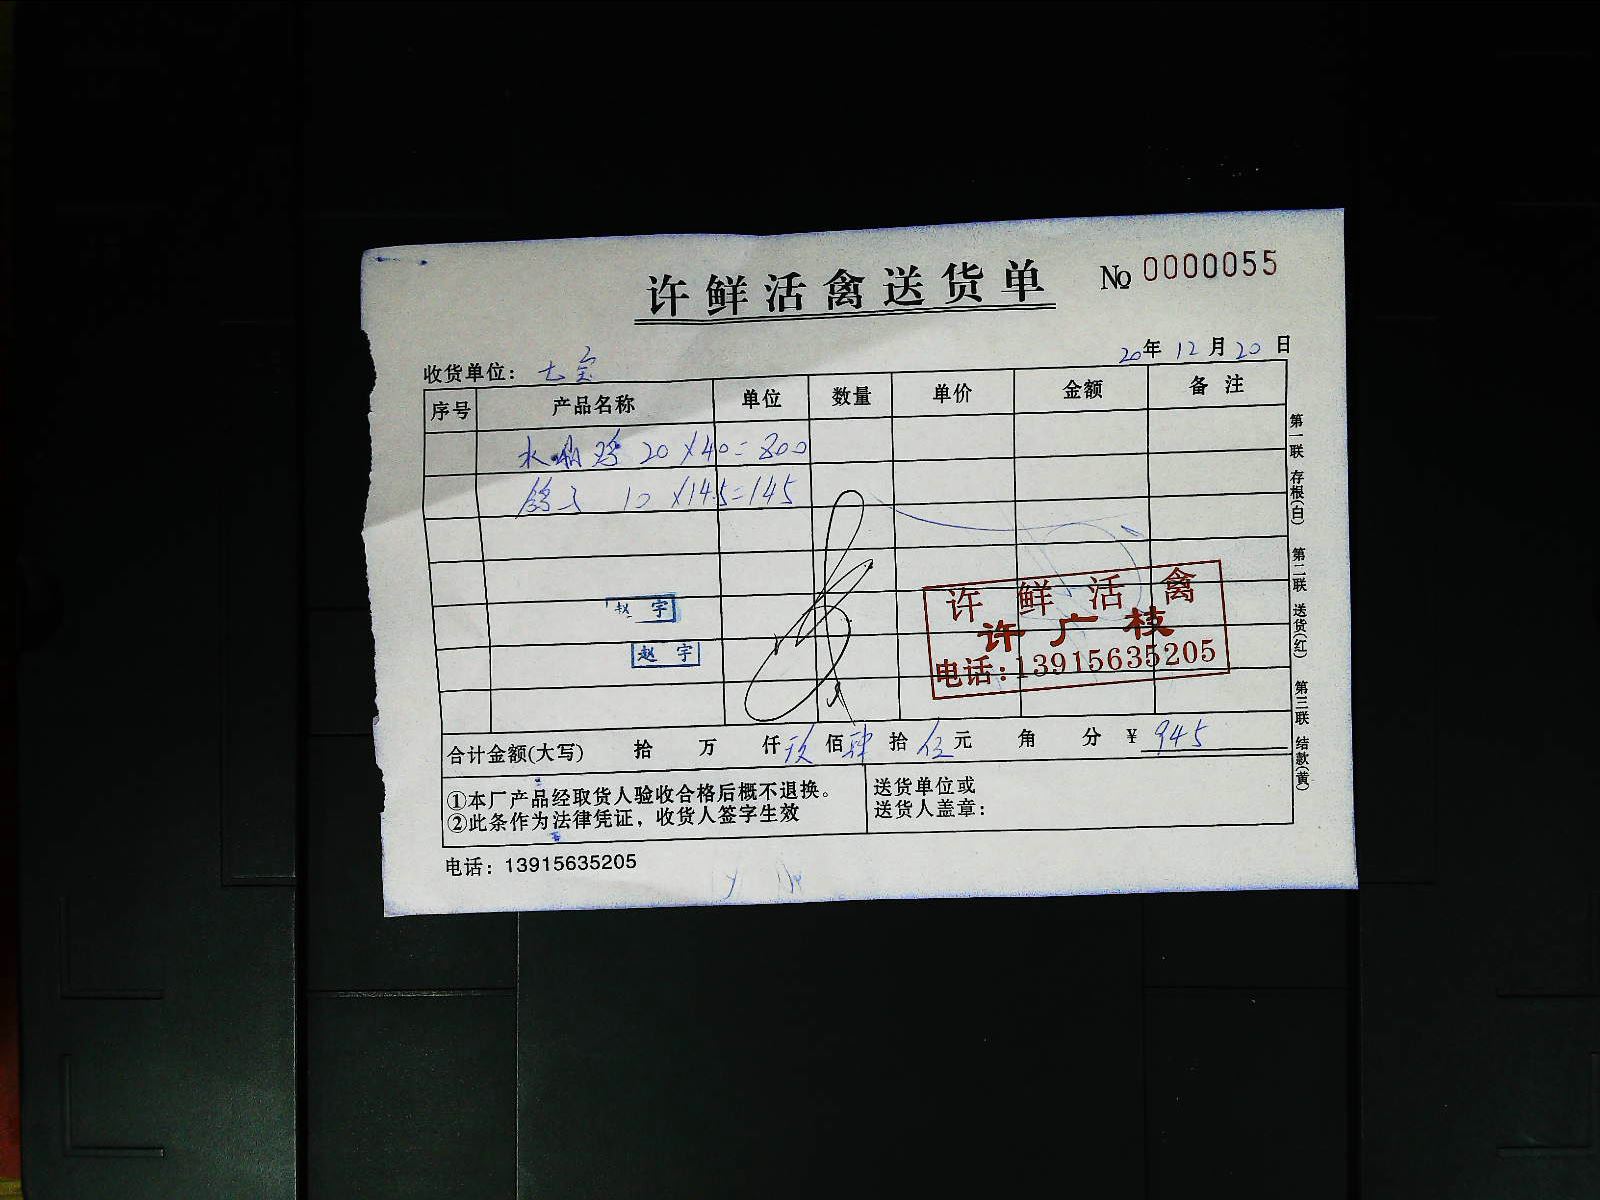 许鲜活禽送货单 № 0000055
收货单位：七宝 20年12月20日
序号 产品名称 单位 数量 单价 金额 备注
水 鸡 20×40=800
鸽子 10×14.5=145
赵宇
赵宇
许鲜活禽
许广枝
电话:13915635205
合计金额(大写) 拾 万 仟玖佰肆拾伍元 角 分 ¥ 945
①本厂产品经取货人验收合格后概不退换。
②此条作为法律凭证，收货人签字生效
送货单位或
送货人盖章：
电话：13915635205
第一联 存根(白) 第二联 送货(红) 第三联 结款(黄)